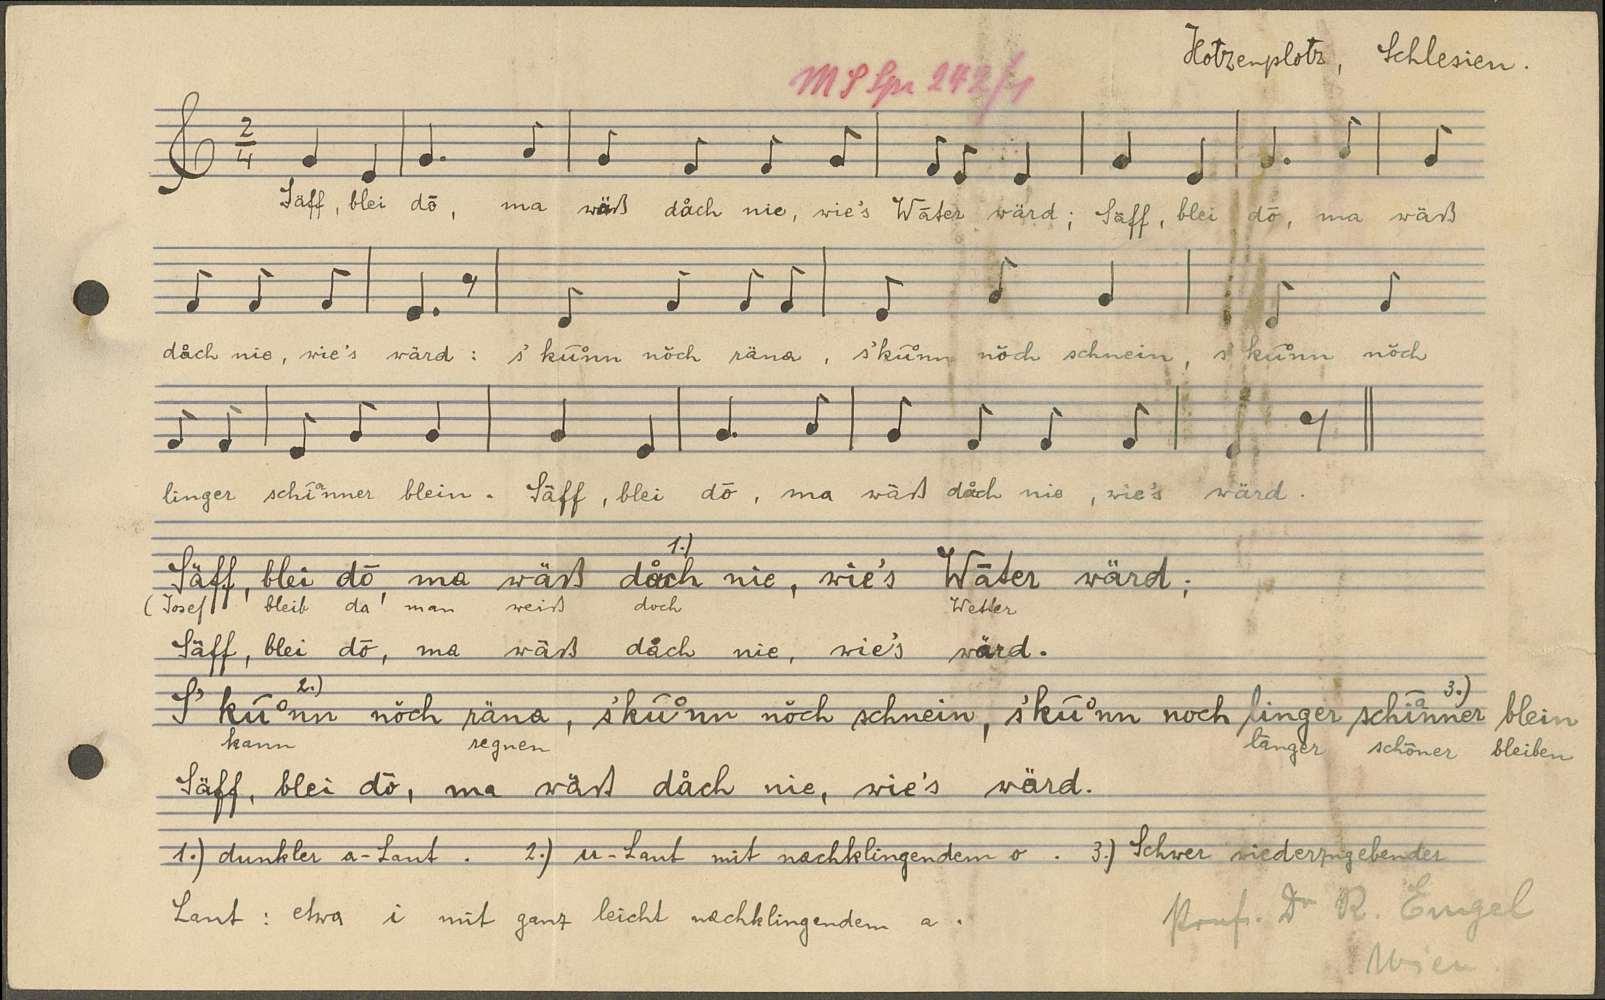 Hotzenplotz, Schlesien.
MS Spr 242/1
2/4
Säff, blei dō, ma wäß dåch nie, wie's Wāter wärd; Säff, blei dō, ma wäß
dåch nie, wie's wärd: s' kūönn nŏch räna, s'kūönn nŏch schnein, s' kūönn nŏch
linger schīanner blein. Säff, blei dō, ma wäß dåch nie, wie's wärd.
1.)
Säff, blei dō, ma wäß dåch nie, wie's Wāter wärd;
(Josef bleib da man weiß doch Wetter
Säff, blei dō, ma wäß dåch nie, wie's wärd.
2.) 3.)
S' kūönn nŏch räna, s'kūönn nŏch schnein, s'kūönn noch linger schīanner blein
kann regnen länger schöner bleiben
Säff, blei dō, ma wäß dåch nie, wie's wärd.
1.) dunkler a-Laut. 2.) u-Laut mit nachklingendem o. 3.) Schwer wiederzugebender
Laut: etwa i mit ganz leicht nachklingendem a.
Prof. Dr R. Engel
Wien